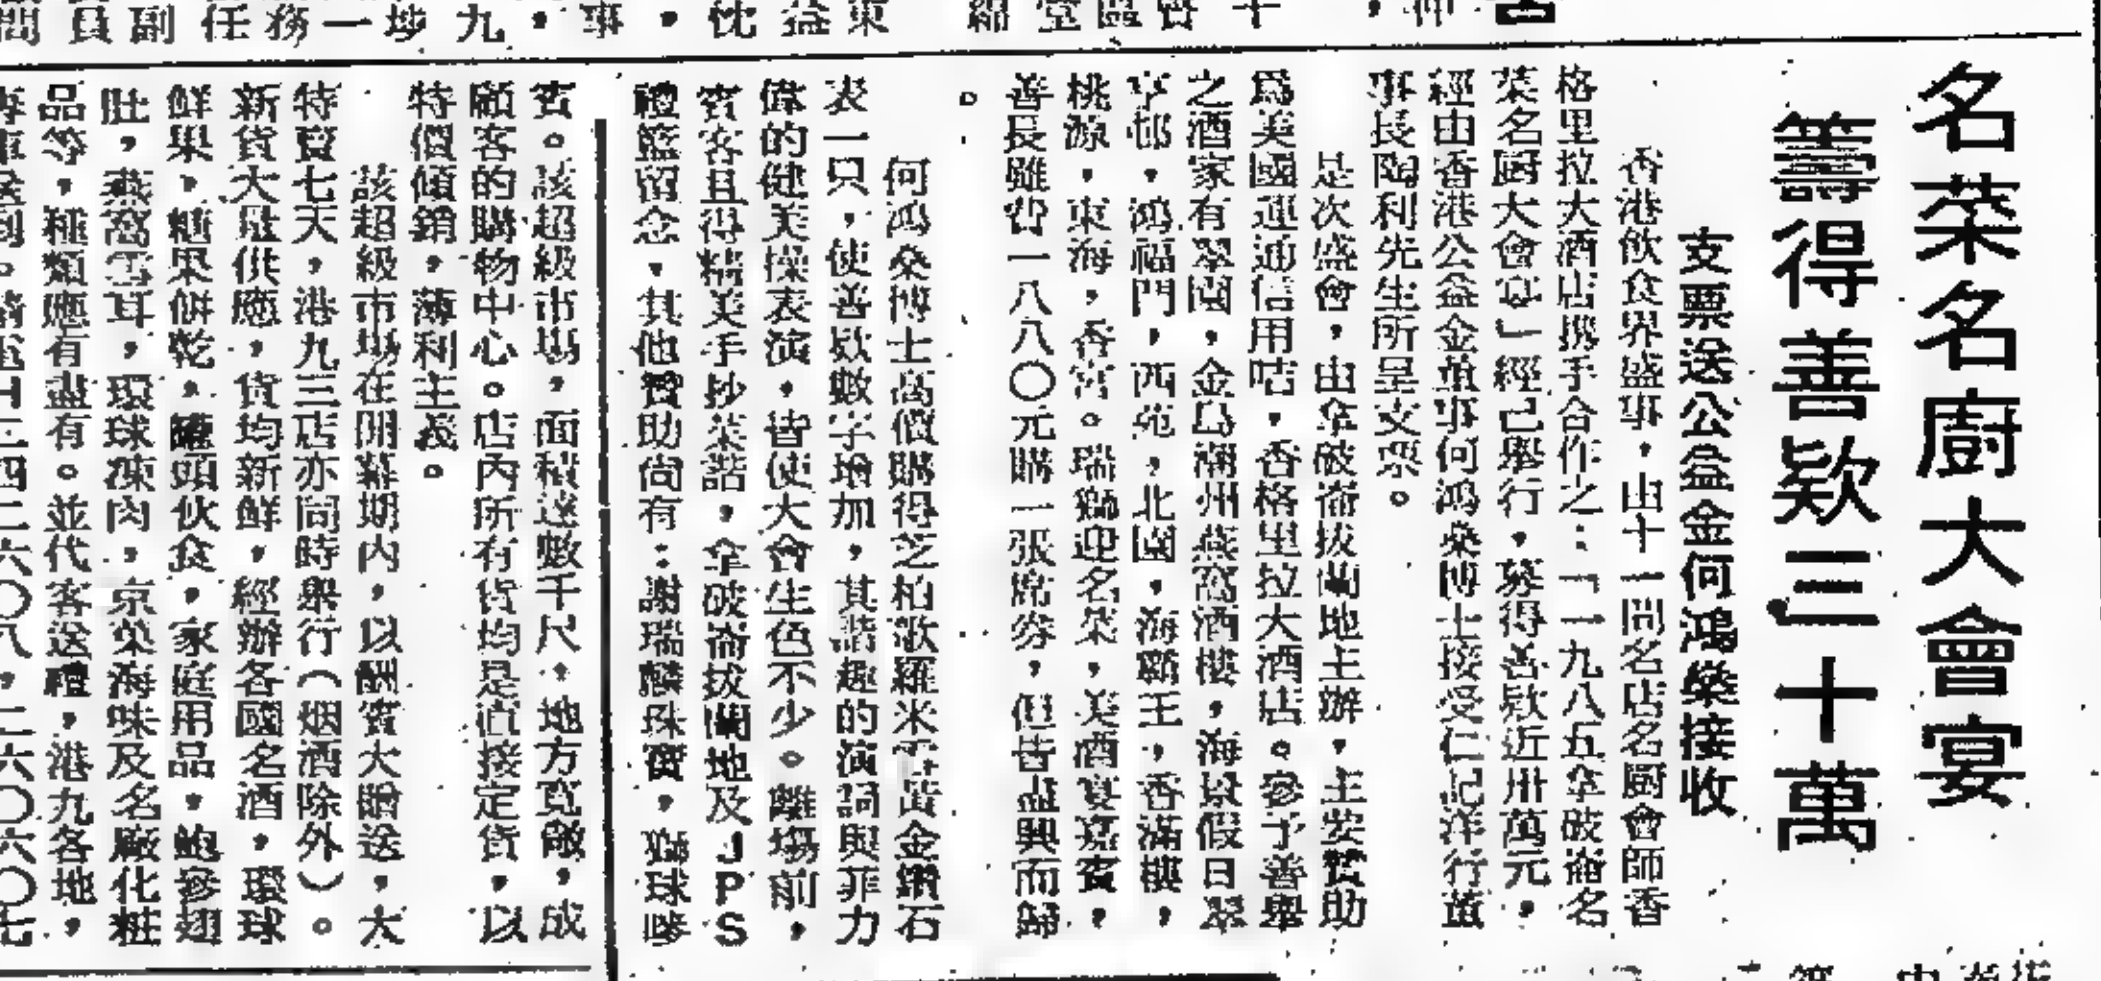 名菜名廚大會宴
籌得善欵三十萬
支票送公益金何鴻燊接收
香港飲食界盛事，由十一間名店名厨會師香
格里拉大酒店携手合作之：「一九八五拿破崙名
菜名厨大會宴」經已舉行，募得善欵近卅萬元，
經由香港公益金董事何鴻燊博士接受仁記洋行董
事長陶利先生所呈支票。
是次盛會，由拿破崙拔蘭地主辦，主要贊助
爲美國運通信用咭，香格里拉大酒店。參予善舉
之酒家有翠園，金島潮州燕窩酒樓，海景假日翠
亨邨，鴻福門，西苑，北園，海霸王，香滿樓，
桃源，東海，香宮。瑞獅迎名菜，美酒宴嘉賓，
善長雖費一八八〇元購一張席券，但皆盡興而歸
。
何鴻燊博士高價購得芝柏歌羅米黃金鑽石
表一只，使善欵數字增加，其諧趣的演詞與菲力
偉的健美操表演，皆使大會生色不少。離塲前，
賓客且得精美手抄菜譜，拿破崙拔蘭地及JPS
禮籃留念，其他贊助尚有：謝瑞麟珠寶，獅球嘜
賓。該超級市塲，面積達數千尺，地方寬敞，成
顧客的購物中心。店內所有貨均是直接定貨，以
特價傾銷，薄利主義。
該超級市塲在開幕期內，以酬賓大贈送，大
特賣七天，港九三店亦同時舉行（烟酒除外）。
新貨大量供應，貨均新鮮，經辦各國名酒，環球
鮮果，糖果餅乾，罐頭伙食，家庭用品，鮑參翅
肚，燕窩雪耳，環球凍肉，京菜海味及名廠化粧
品等，種類應有盡有。並代客送禮，港九各地，